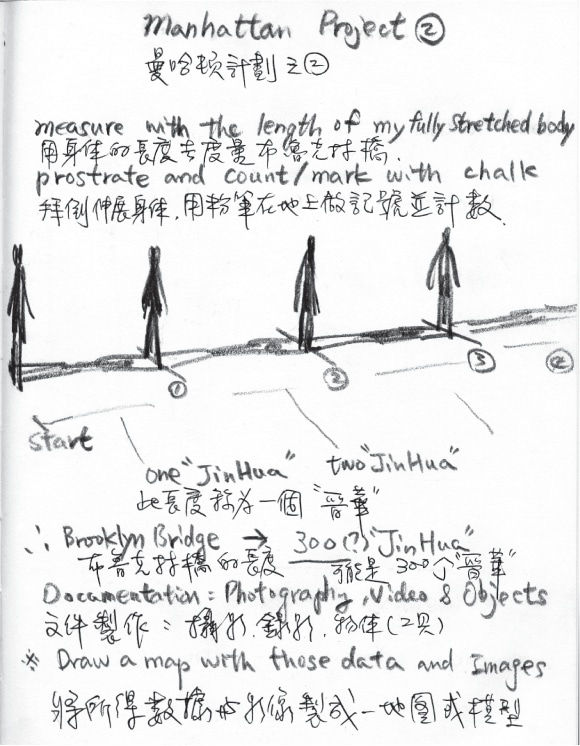 Manhattan Project ②
曼哈頓計劃之②
measure with the length of my fully stretched body
用身体的長度去度量布魯克林橋.
prostrate and count/mark with chalk
拜倒伸展身体.用粉筆在地上做記號並計數.
① ② ③ ④
start
one "JinHua" two "JinHua"
此長度称为一個"晉華"
∴ Brooklyn Bridge → 300(?) "JinHua"
布魯克林橋的長度 可能是300个"晉華"
Documentation: Photography, Video & Objects
文件製作: 攝影.錄影.物体(工具)
※ Draw a map with those data and Images
將所得數據与影像製成一地圖或模型